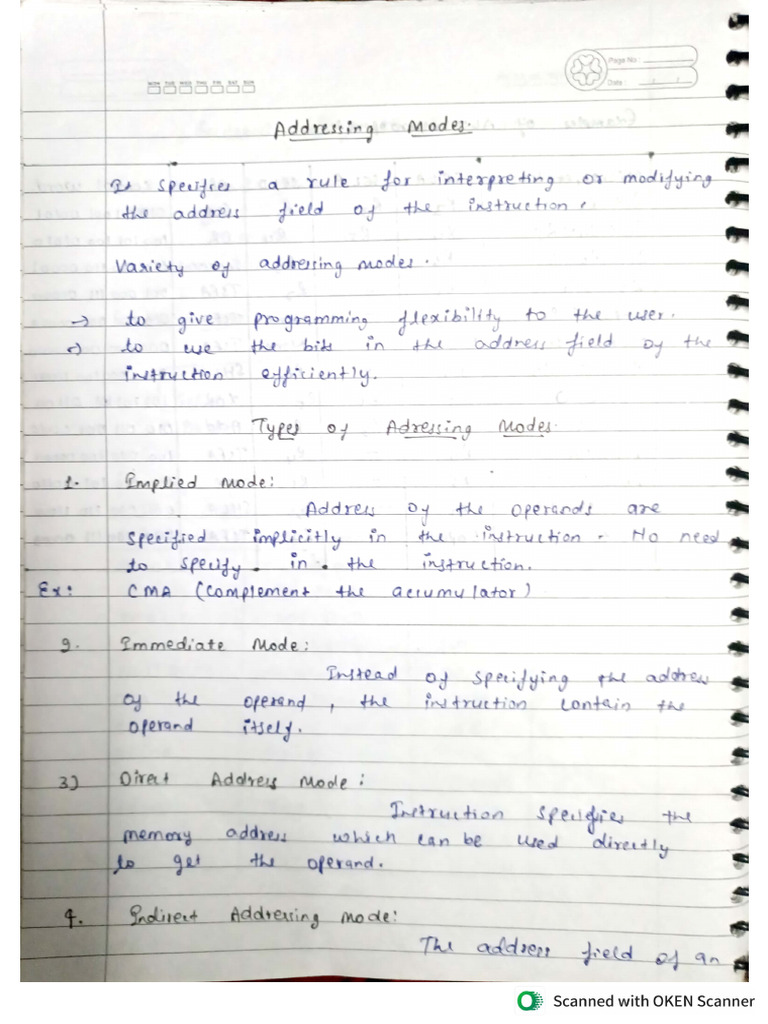 MON TUE WED THU FRI SAT SUN
Page No:
Date:
Addressing Modes.
It specifies a rule for interpreting or modifying
the address field of the instruction.
Variety of addressing modes.
→ to give programming flexibility to the user.
→ to use the bits in the address field of the
instruction efficiently.
Types of Adressing Modes.
1. Implied Mode:
Address of the operands are
specified implicitly in the instruction. No need
to specify in the instruction.
Ex: CMA (Complement the accumulator)
2. Immediate Mode:
Instead of specifying the address
of the operand, the instruction contain the
operand itself.
3) Direct Address Mode:
Instruction specifies the
memory address which can be used directly
to get the operand.
4. Indirect Addressing Mode:
The address field of an
Scanned with OKEN Scanner